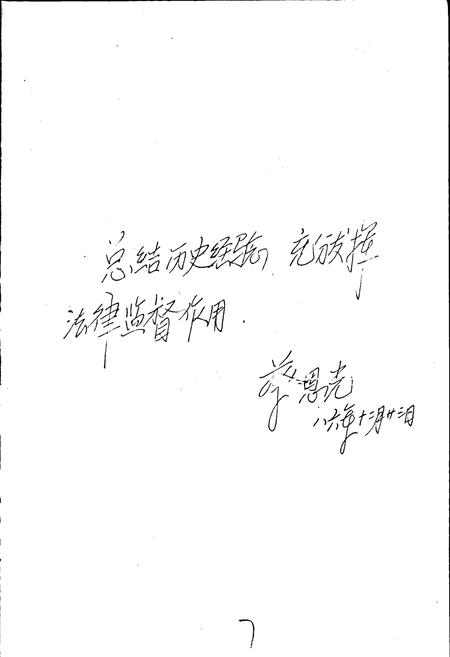 总结历史经验，充分发挥
法律监督作用．
蔡恩光
八六年十二月廿三日
7